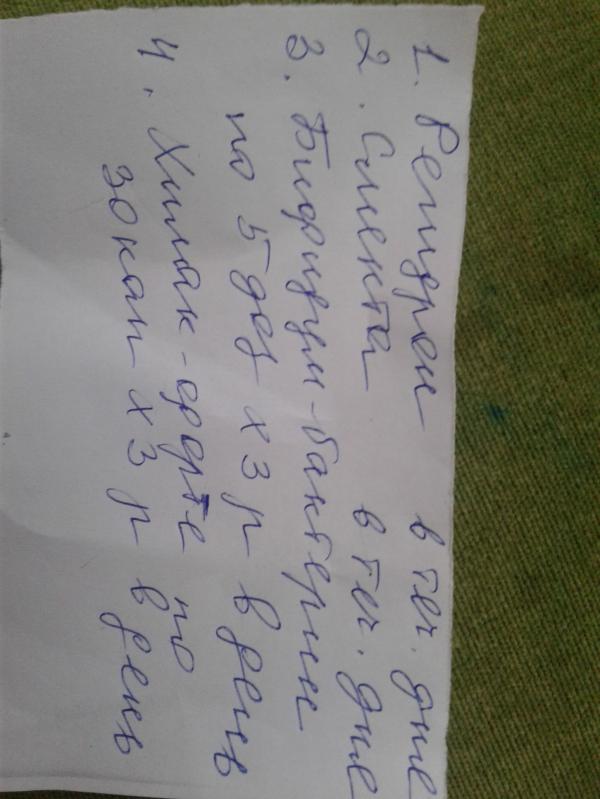 1. Регидрон в теч. дня
2. Смекта в теч. дня
3. Бифидум-бактерин
по 5 доз х 3 р в день
4. Хилак-форте по
30 кап х 3 р в день